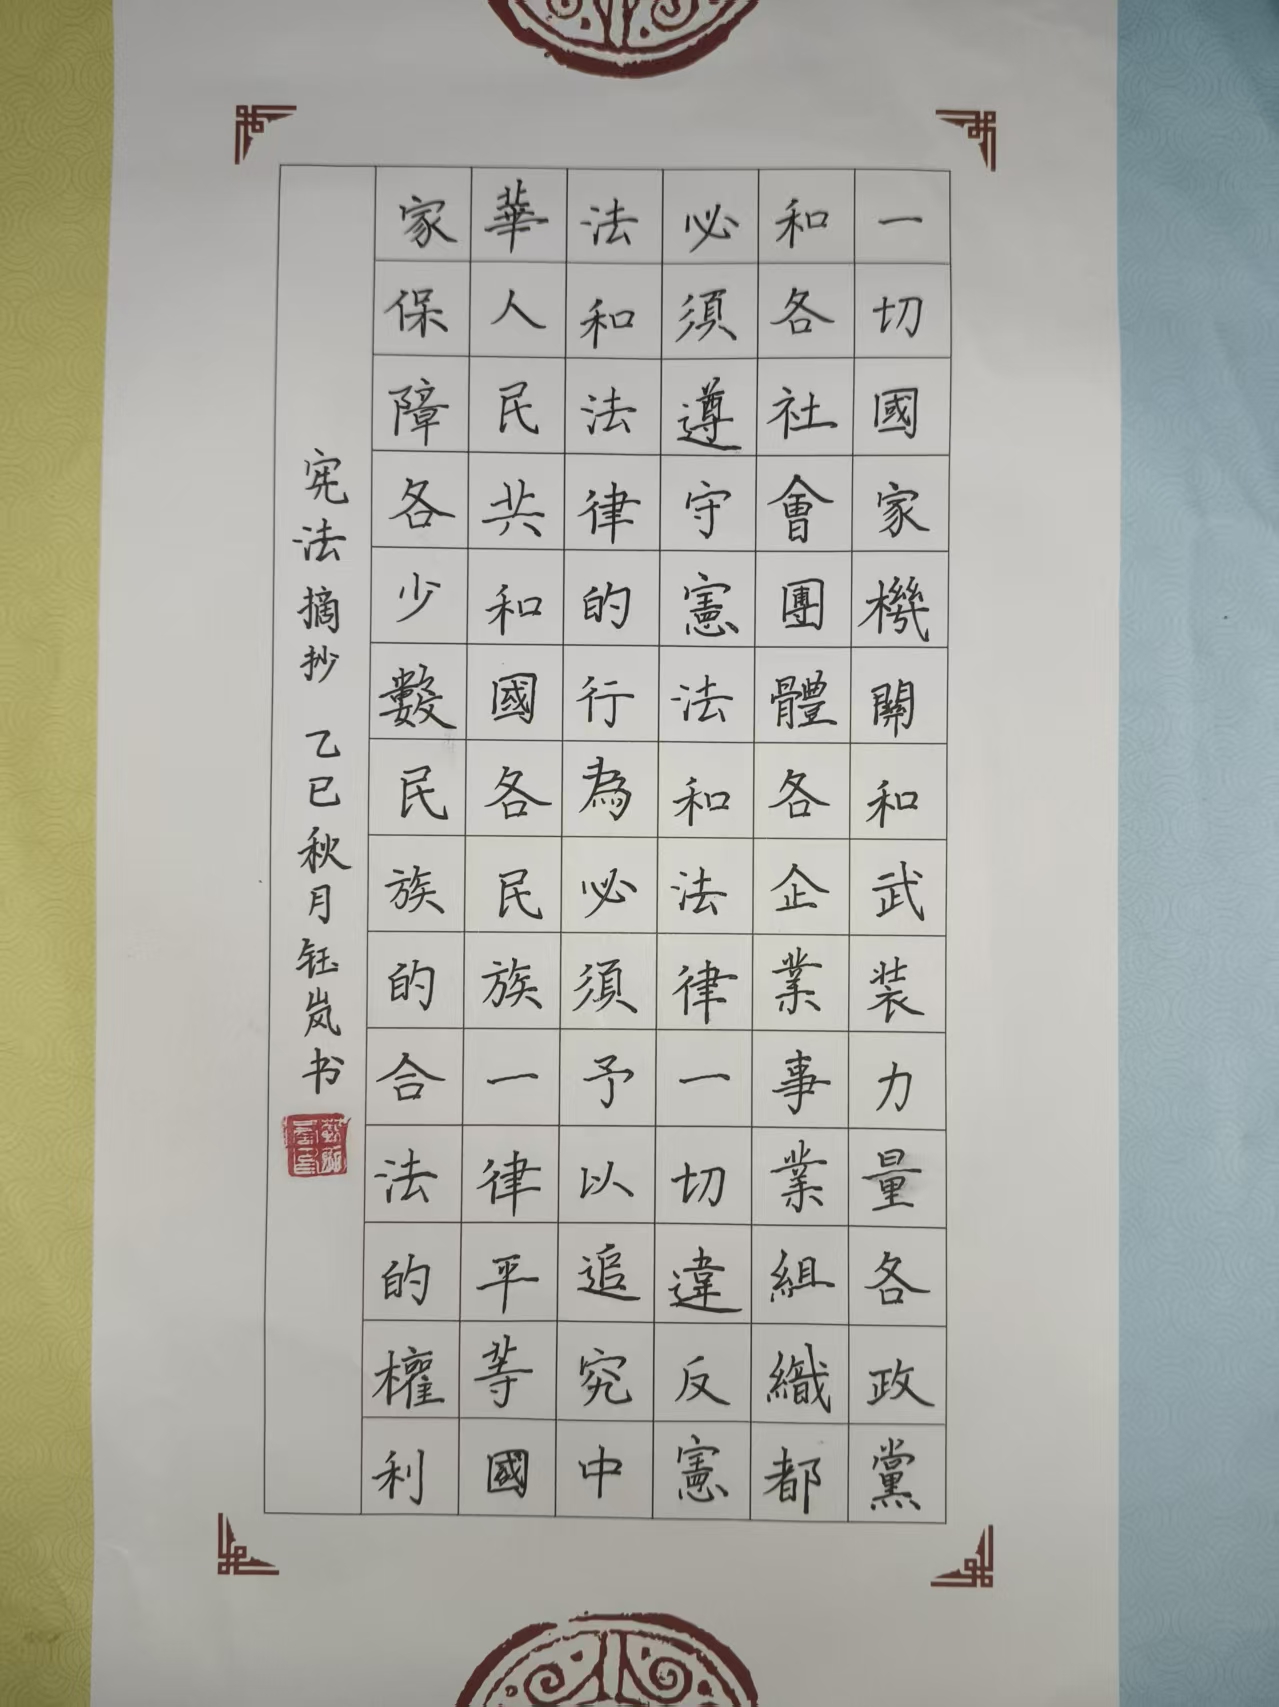 一切國家機關和武装力量各政黨
和各社會團體各企業事業組織都
必須遵守憲法和法律一切違反憲
法和法律的行為必須予以追究中
華人民共和國各民族一律平等國
家保障各少數民族的合法的權利
宪法摘抄 乙巳秋月钰岚书